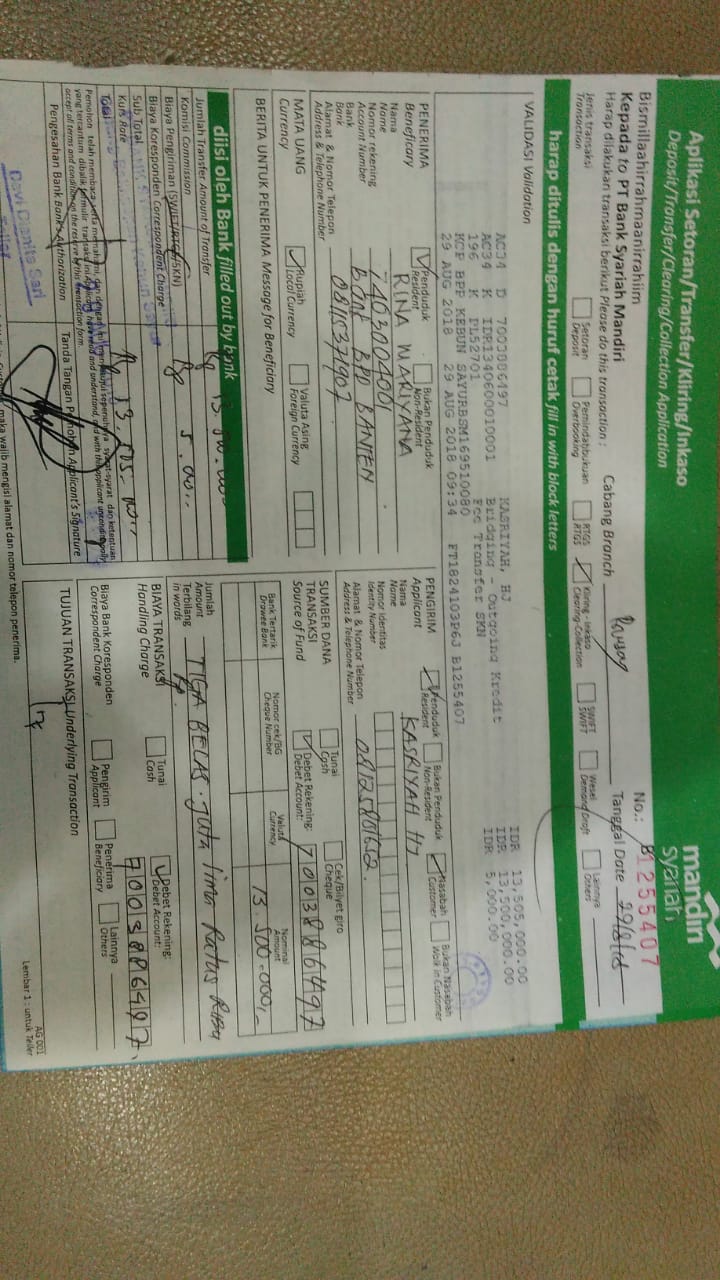 Aplikasi Setoran/Transfer/Kliring/Inkaso
Deposit/Transfer/Clearing/Collection Application
mandiri
syariah
Bismillaahirrahmaanirrahiim
No.: B1255407
Kepada to PT Bank Syariah Mandiri
Cabang Branch
Tanggal Date 29/8/18
Harap dilakukan transaksi berikut Please do this transaction :
Jenis transaksi
Transaction
Setoran
Deposit
Pemindahbukuan
Overbooking
RTGS
RTGS
Kliring - Inkaso
Clearing-Collection
SWIFT
SWIFT
Wesel
Demand Draft
Lainnya
Others
harap ditulis dengan huruf cetak fill in with block letters
VALIDASI Validation
AC34 D 7003886497 KASRIYAH, HJ IDR 13,505,000.00
AC34 K IDR1340600010001 Bridging - Outgoing Kredit IDR 13,500,000.00
196 K PL52701 Fee Transfer SKN IDR 5,000.00
KCP BPP KEBUN SAYURBSM169510080
29 AUG 2018 29 AUG 2018 09:34 FT1824103P6J B1255407
PENERIMA
Beneficary
Penduduk
Resident
Bukan Penduduk
Non-Resident
Nama
Name
RINA MARIYANA
Nomor rekening
Account Number
7403004001
Bank
Bank
bank BPD BANTEN
Alamat & Nomor Telepon
Address & Telephone Number
08115371907
MATA UANG
Currency
Rupiah
Local Currency
Valuta Asing
Foreign Currency
BERITA UNTUK PENERIMA Message for Beneficiary
PENGIRIM
Applicant
Penduduk
Resident
Bukan Penduduk
Non-Resident
Nasabah
Customer
Bukan Nasabah
Walk in Customer
Nama
Name
KASRIYAH HJ
Nomor Identitas
Identity Number
Alamat & Nomor Telepon
Address & Telephone Number
SUMBER DANA
TRANSAKSI
Source of Fund
Tunai
Cash
Cek/Bilyet giro
Cheque
Debet Rekening:
Debet Account:
7003886497
Bank Tertarik
Drawee Bank
Nomor cek/BG
Cheque Number
Valuta
Currency
Nominal
Amount
13.500.000,-
diisi oleh Bank filled out by bank
Jumlah Transfer Amount of Transfer
Rp 13.500.000
Komisi Commission
Biaya Pengiriman (SWIFT/RTGS/SKN)
Rp 5.000,-
Biaya Koresponden Correspondent Charge
Sub Total
Kurs Rate
Total
Rp 13.505.000,-
Pemohon telah membaca serta memahami, dan dengan ini menyetujui sepenuhnya syarat-syarat dan ketentuan
yang tercantum dibalik formulir transaksi ini
Pengesahan Bank Bank's Authorization
Tanda Tangan Pemohon Applicant's Signature
Devi Damita Sari
Jumlah
Amount
Terbilang
in words
TIGA BELAS Juta lima Ratus Ribu
Rp.
BIAYA TRANSAKSI
Handling Charge
Tunai
Cash
Debet Rekening:
Debet Account:
7003886497
Biaya Bank Koresponden
Correspondent Charge
Pengirim
Applicant
Penerima
Beneficiary
Lainnya
Others
TUJUAN TRANSAKSI Underlying Transaction
maka wajib mengisi alamat dan nomor telepon penerima.
AG 001
Lembar 1 : untuk Teller